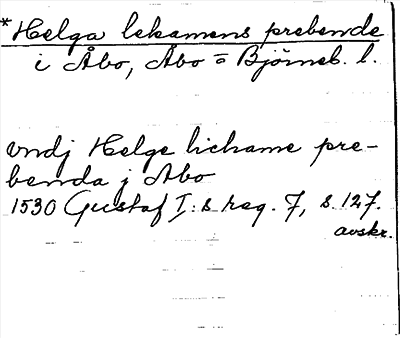 *Helga lekamens prebende
i Åbo, Åbo = Björneb. l.
vndj Helge lichame pre-
benda j Abo
1530 Gustaf I:s reg. 7, s. 127.
avskr.